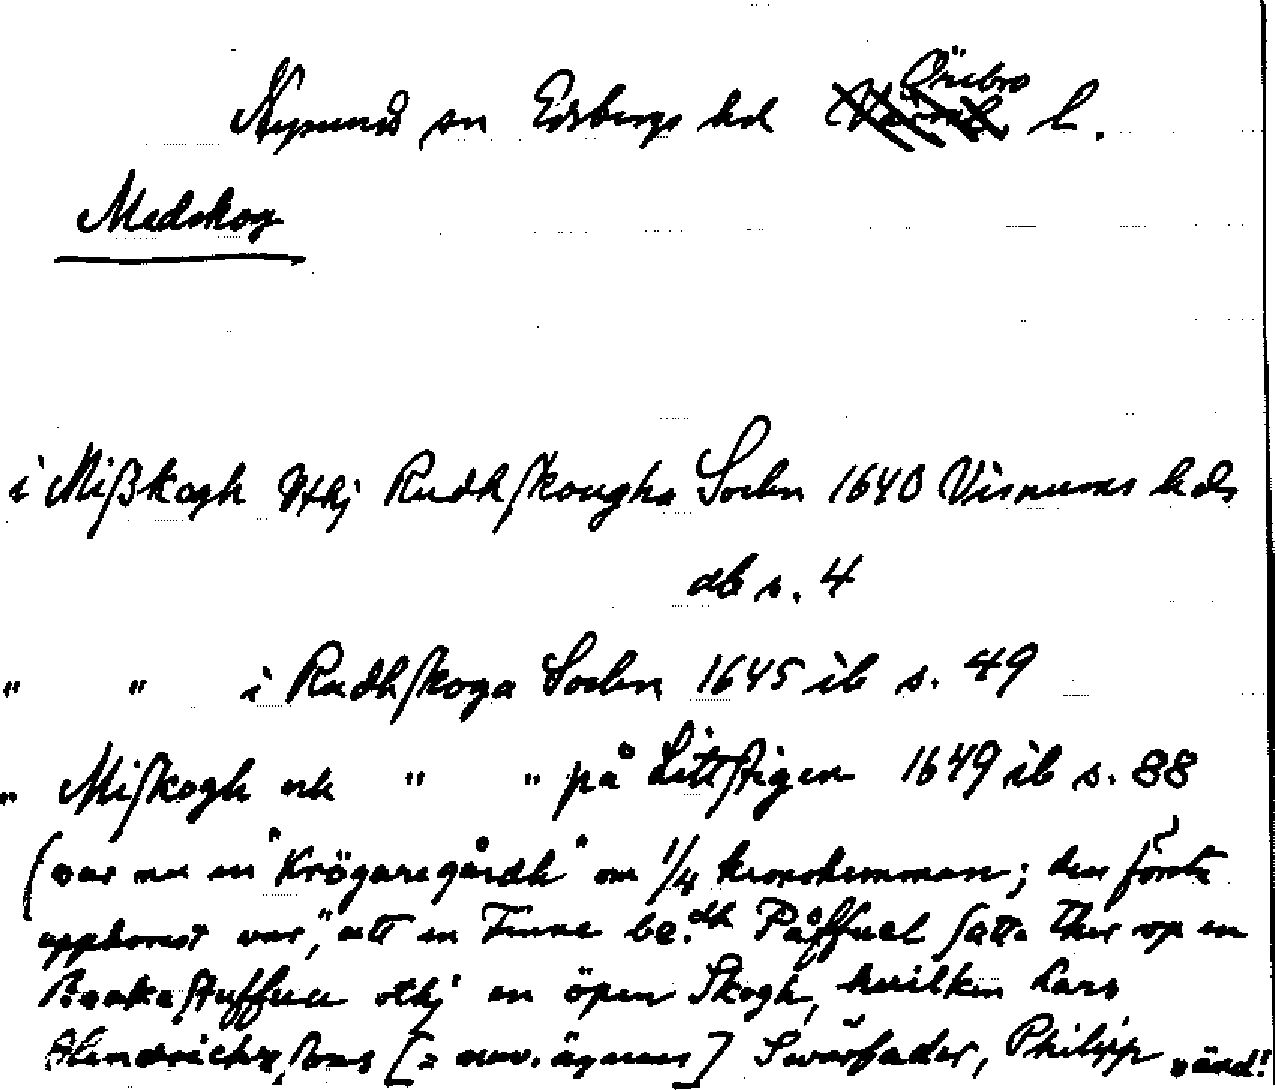 Nysunds sn Edsbergs hd Örebro l.
Medskog
i Mißkogh Vthj Rudhskougha Sochn 1640 Visnums hds
db s. 4
" " i Rudhskoga Sochn 1645 ib s. 49
" Miskogh och " " på Littstigen 1649 ib s. 88
(var nu en "Krögaregårdh" om 1/4 kronohemman; den första
uppkomst var, "att en Finne be:dh Påffuel satte ther vp en
Baakestuffuu vthj en öpen Skogh, huilken Lars
Hendrichzsons [= nuv. ägares] Swärfader, Philipp vänd!